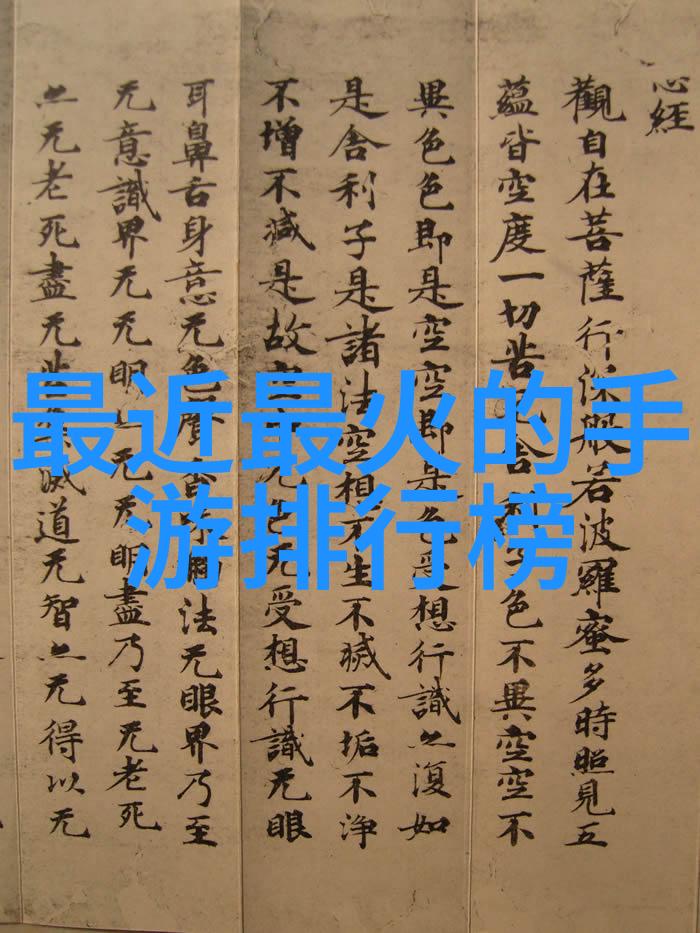 心經
觀自在菩薩行深般若波羅蜜多時照見五
蘊皆空度一切苦舍子色不異空空不
異色色即是空空即是色受想行識亦復如
是舍利子是諸法空想不生不滅不垢不淨
不增不減是故无色无受想行識无眼
耳鼻舌身意无色法无眼界乃至
无意識界无无明亦无无明盡乃至无老死
亦无老死盡无滅道无智亦无得以无
最近最火的手
游排行榜